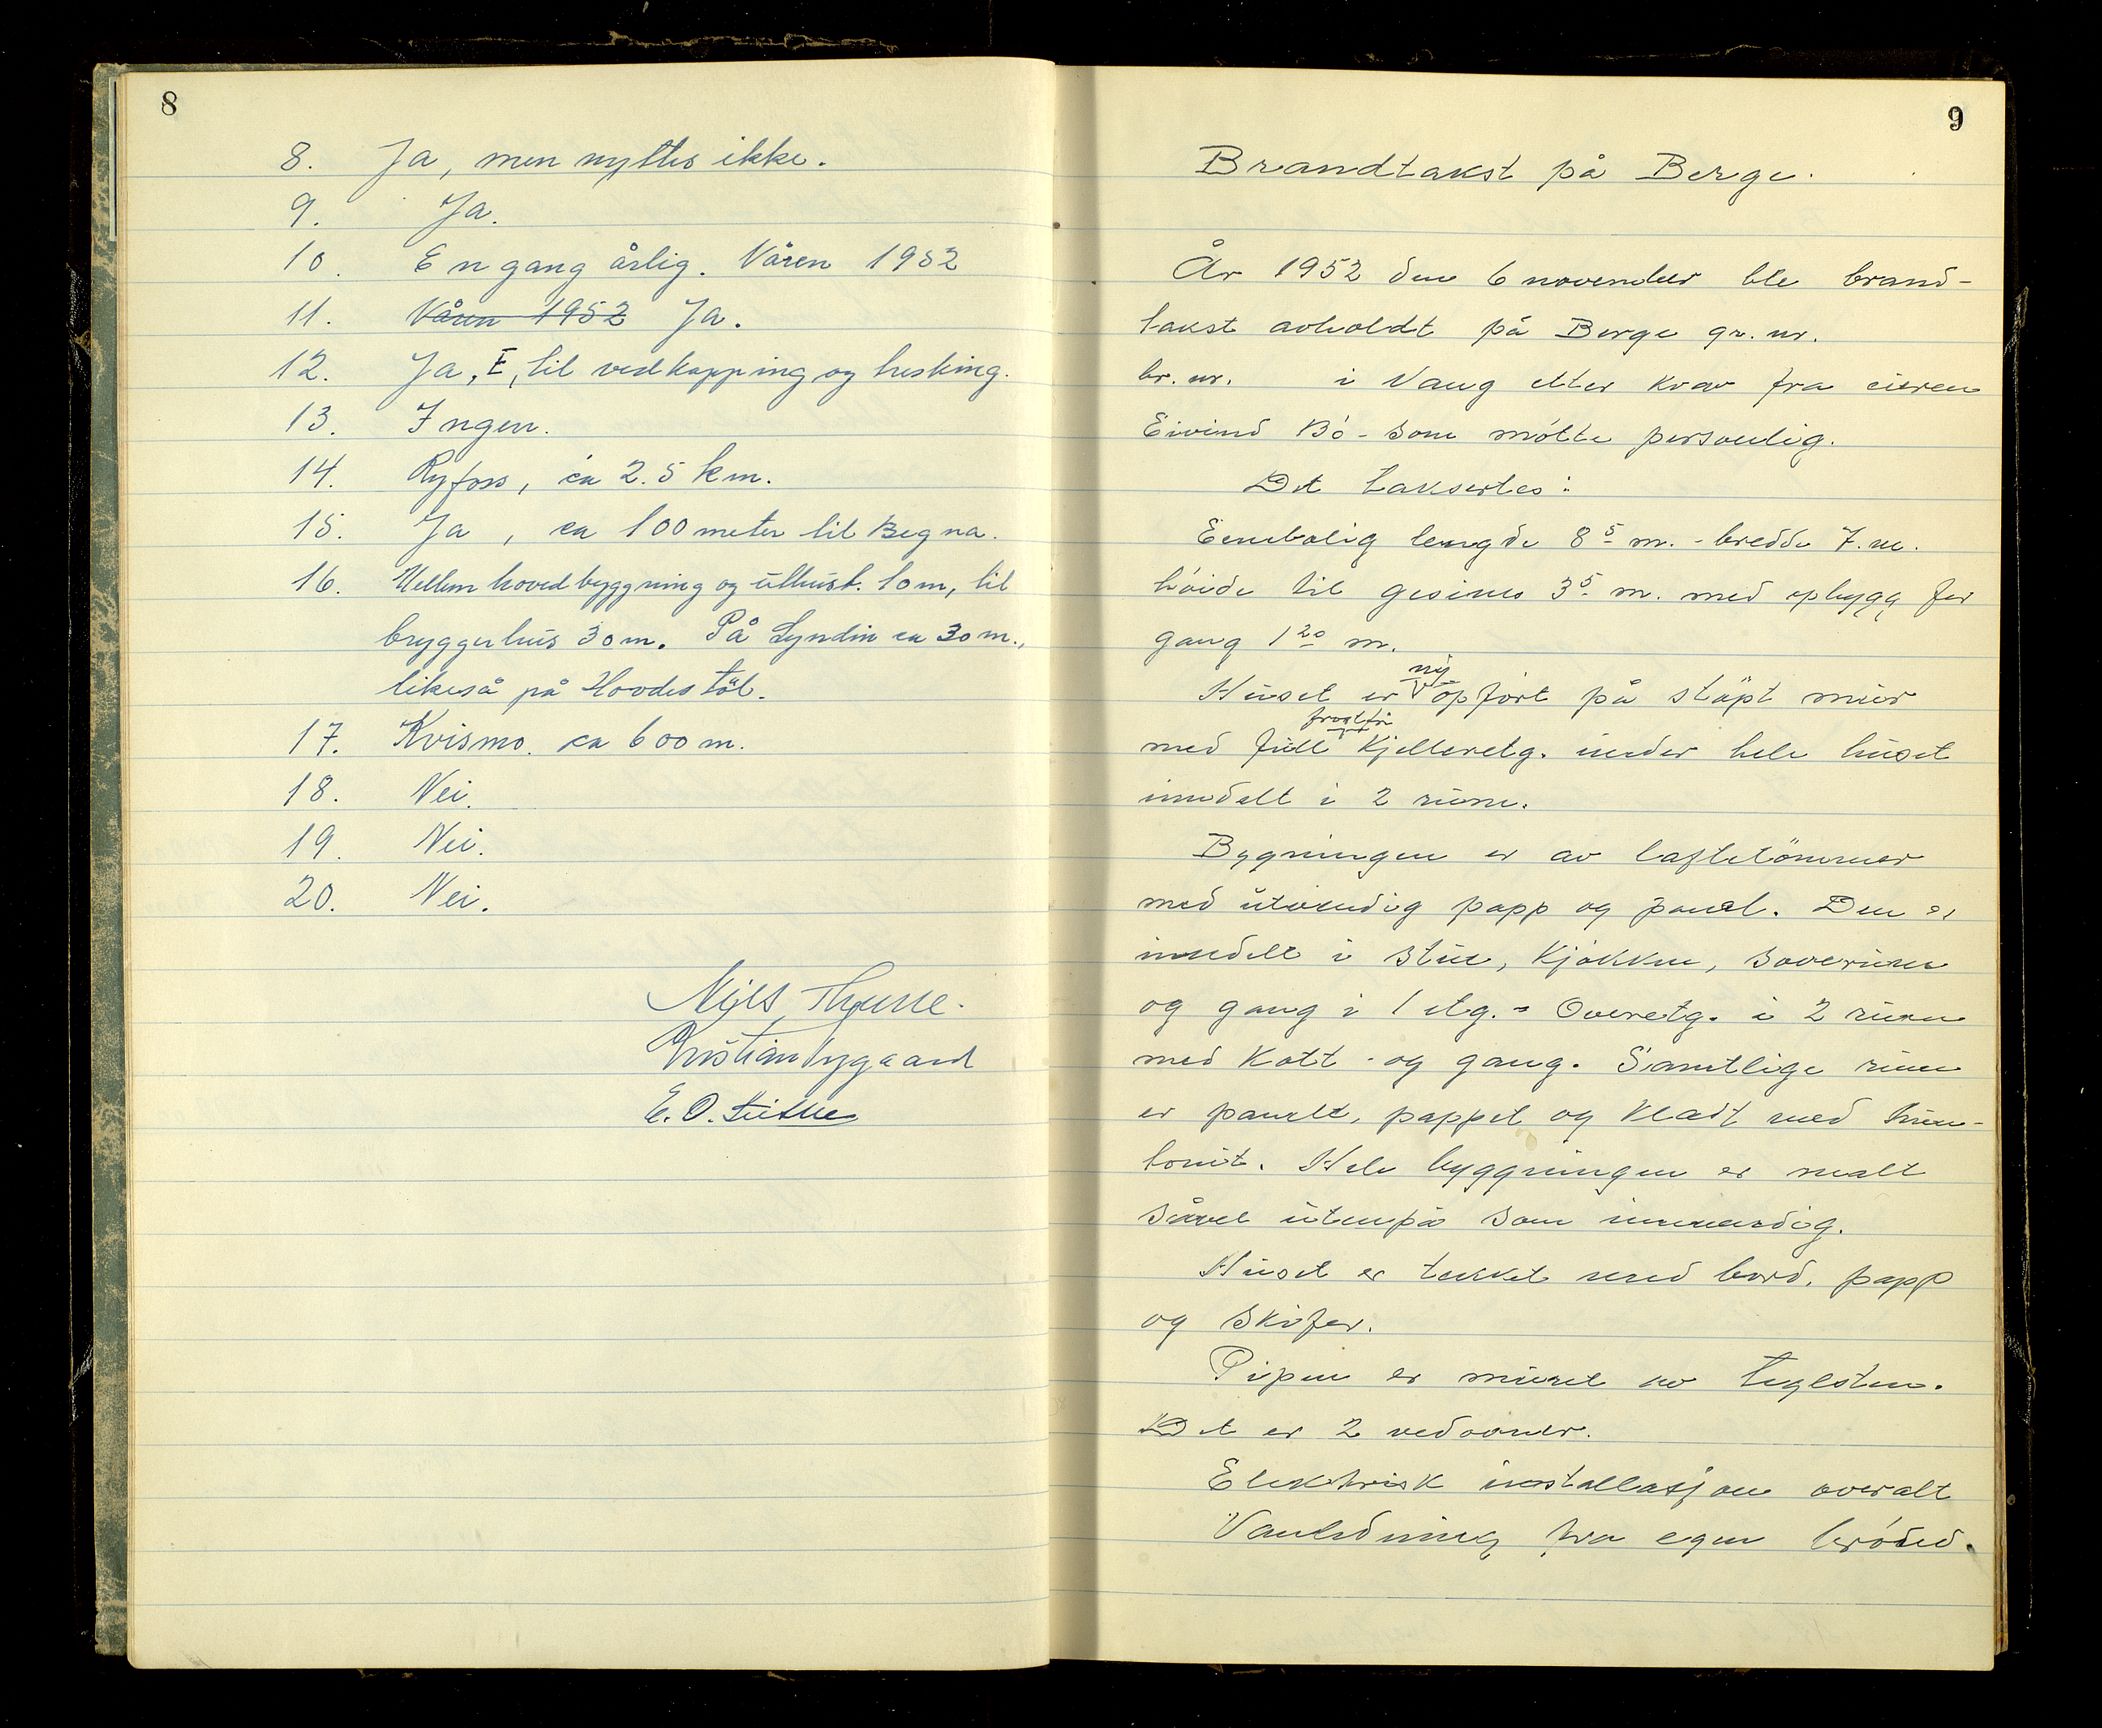 8
8. Ja, men nyttes ikke.
9. Ja.
10. En gang årlig. Våren 1952
11. Våren 1952 Ja.
12. Ja, I, til vedkapping og tresking.
13. Ingen.
14. Ryfoss, ca 2.5 km.
15. Ja, ca 100 meter til Begna.
16. Mellem hovedbyggning og uthust. 10 m, til
bryggerhus 30 m. På Syndin ca 30 m.,
likeså på Hovdestöl.
17. Kvismo. ca 600 m.
18. Nei.
19. Nei.
20. Nei.
Nils Thune.
Kristian Nygaard
E. O.
9
Brandtakst på Berge.
År 1952 den 6 november ble brand-
takst avholdt på Berge gr. nr.
br. nr. i Vang etter krav fra eieren
Eivind Bö - som mötte personlig.
Det taksertes:
Eenebolig lengde 8 5 m. - bredde 7. m.
höide til gesims 3 5 m. med opbygg for
gang 1 20 m.
Huset er ny opfört på stöpt mur
med full frostfri kjelleretg. under hele huset
inndelt i 2 rum.
Bygningen er av laftetömmer
med utvendig papp og panel. Den er
inndelt i stue, kjökken, soverum
og gang i 1 etg. - Overetg. i 2 rum
med kott - og gang. Samtlige rum
er panelt, pappet og kledt med hun-
tonit. Hele byggningen er malt
såvel utenpå som innvendig.
Huset er tekket med bord, papp
og skifer.
Pipen er muret av teglsten.
Det er 2 vedovner.
Elektrisk installasjon overalt
Vanledning fra egen brönd.